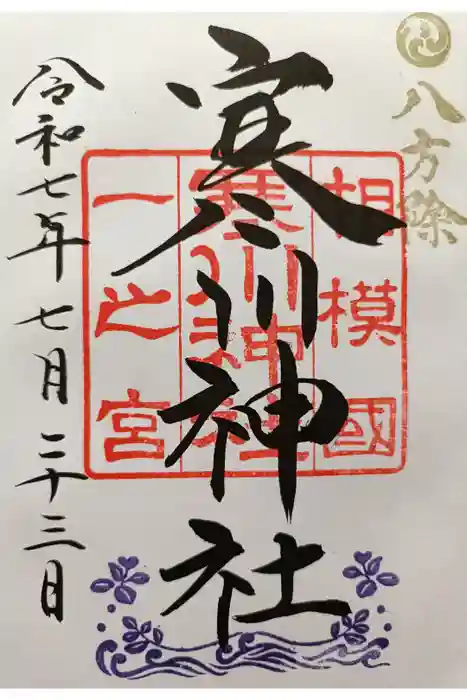 八方除
寒川神社
相模國
寒川神社
一之宮
令和七年七月二十三日